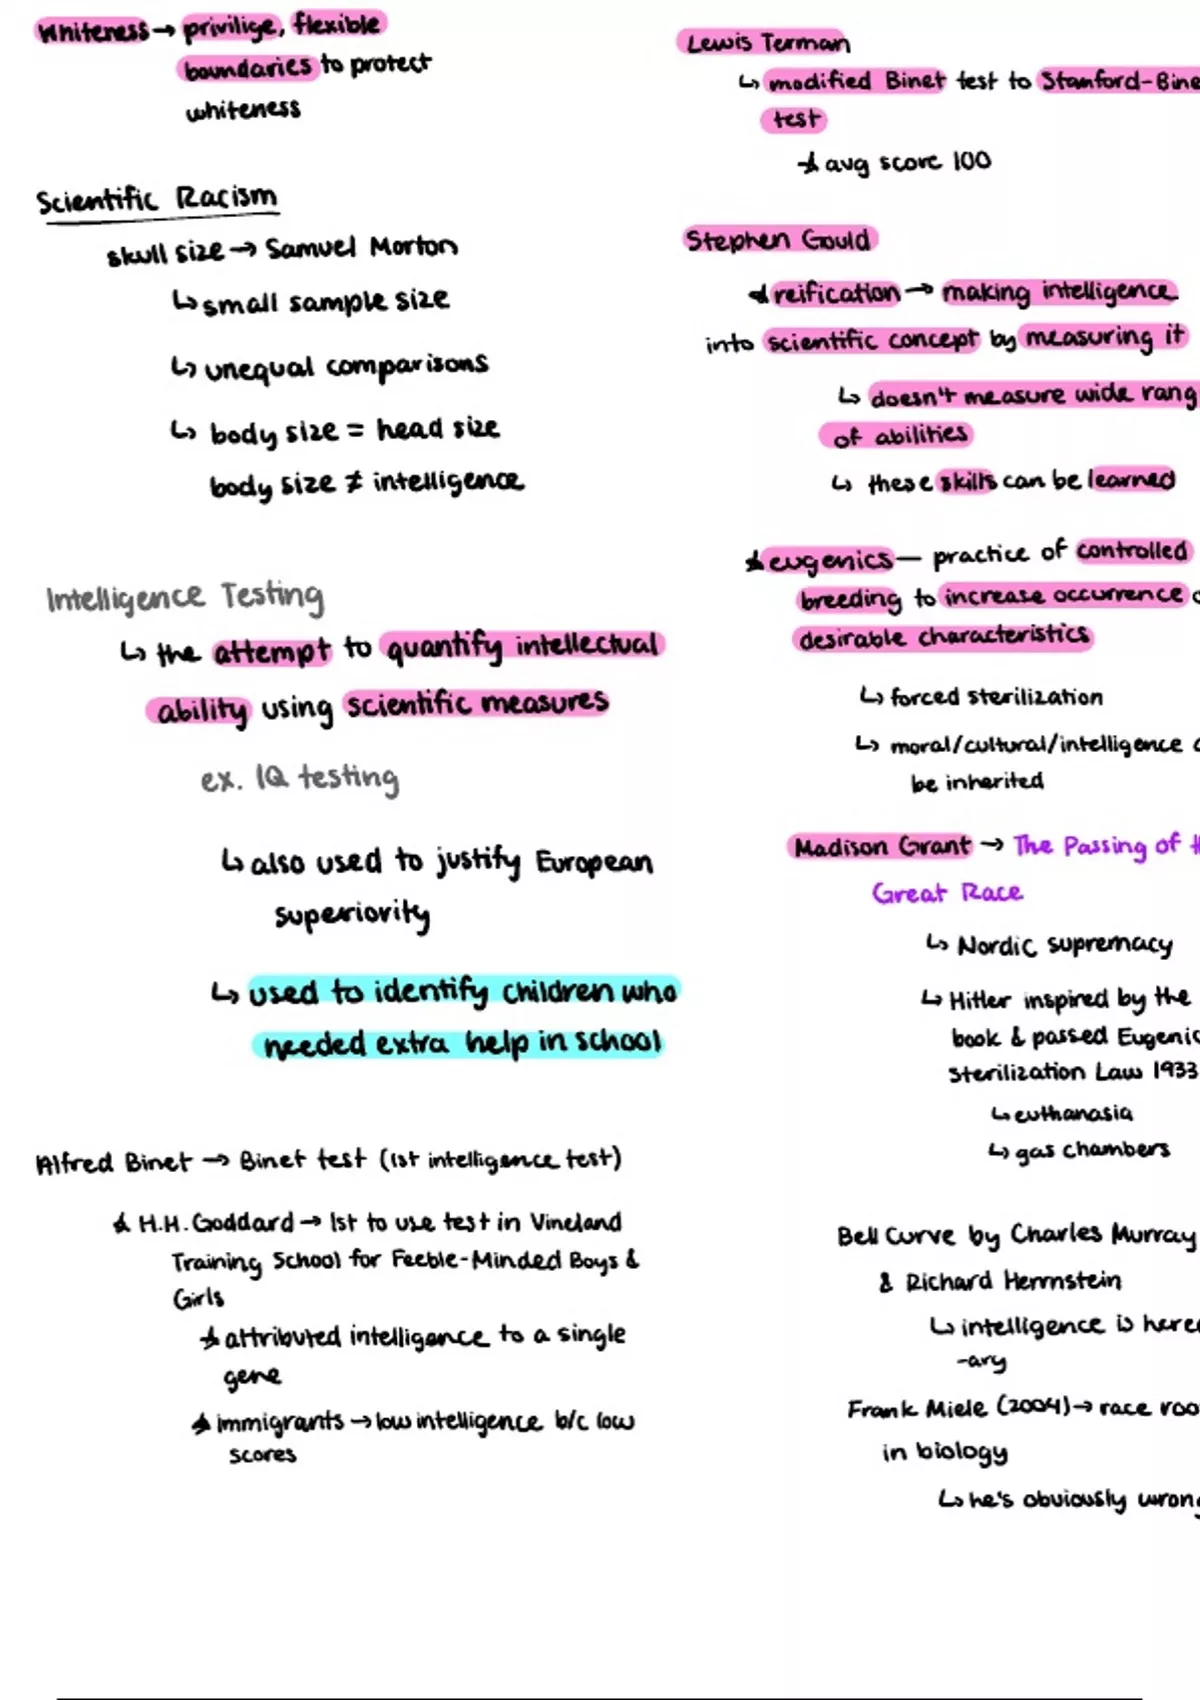 Whiteness → privilige, flexible
boundaries to protect
whiteness
Scientific Racism
skull size → Samuel Morton
↳ small sample size
↳ unequal comparisons
↳ body size = head size
body size ≠ intelligence
Intelligence Testing
↳ the attempt to quantify intellectual
ability using scientific measures
ex. IQ testing
↳ also used to justify European
superiority
↳ used to identify children who
needed extra help in school
Alfred Binet → Binet test (1st intelligence test)
★ H.H. Goddard → 1st to use test in Vineland
Training School for Feeble-Minded Boys &
Girls
★ attributed intelligence to a single
gene
★ immigrants → low intelligence b/c low
scores
Lewis Terman
↳ modified Binet test to Stanford-Bine
test
★ avg score 100
Stephen Gould
★ reification → making intelligence
into scientific concept by measuring it
↳ doesn't measure wide rang
of abilities
↳ these skills can be learned
★ eugenics — practice of controlled
breeding to increase occurrence
desirable characteristics
↳ forced sterilization
↳ moral/cultural/intelligence
be inherited
Madison Grant → The Passing of
Great Race
↳ Nordic supremacy
↳ Hitler inspired by the
book & passed Eugenic
Sterilization Law 1933
↳ euthanasia
↳ gas chambers
Bell Curve by Charles Murray
& Richard Herrnstein
↳ intelligence is here
-ary
Frank Miele (2004) → race roo
in biology
↳ he's obviously wrong